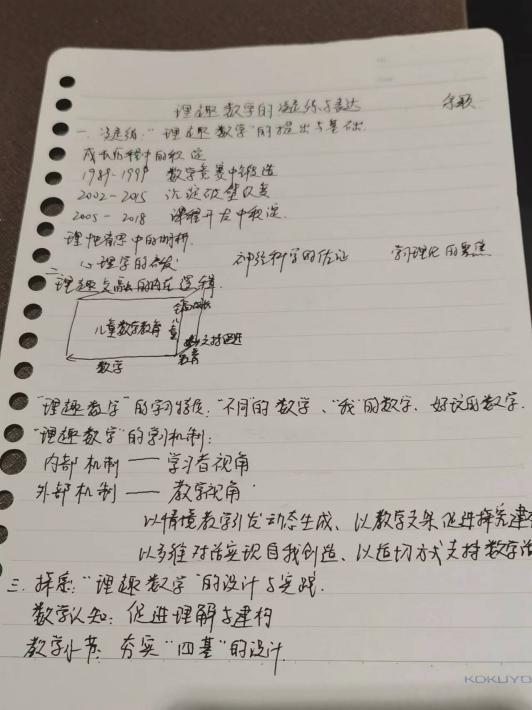 理趣数学的凝练与表达
一、凝练:"理趣数学"的提出与基础
成长历程中的积淀
1989-1999 数学竞赛中锻造
2002-2015
2005-2018 课程开发中积淀
理性省思中的明晰
心理学的启发 神经科学的佐证 学习理论的聚焦
二、理趣交融的内在逻辑
儿童数学教育 儿童
数学 教育
"理趣数学"的学习特质:"不同"的数学、"我"的数学、好玩的数学.
"理趣数学"的学习机制:
内部机制——学习者视角
外部机制——教学视角
以情境教学引发动态生成、以教学支架促进探究建
以多维对话实现自我创造、以适切方式支持数学
三、探索:"理趣数学"的设计与实践.
数学认知:促进理解与建构
教学小节:夯实"四基"的设计
KOKUYO